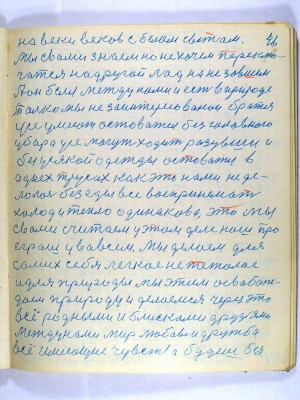 26
на веки веков с белом светам.
Мы свами знаем но не хочем переклю-
чатся на другой лад на не зовшем
А он бел между нами и ест в природе
Только мы не заинтересованои братся
уже умеют оставатся без головного
убара уже могут ходит разувши и
без усякой одежды оставатся в
одних трусах как это нами не де-
лолос без еды все воспринемат
холод и тепло одинаково, это мы
свами считаем у этом деле наш про
еграш у вавсем. Мы делаем для
самих себя легкое не тежолае
и для природы мы этим освабаж-
даем природу и делаемся через это
всё родными и блиским друзями
между нами мир любовь и дружба
всё имеющие чувства будеш без